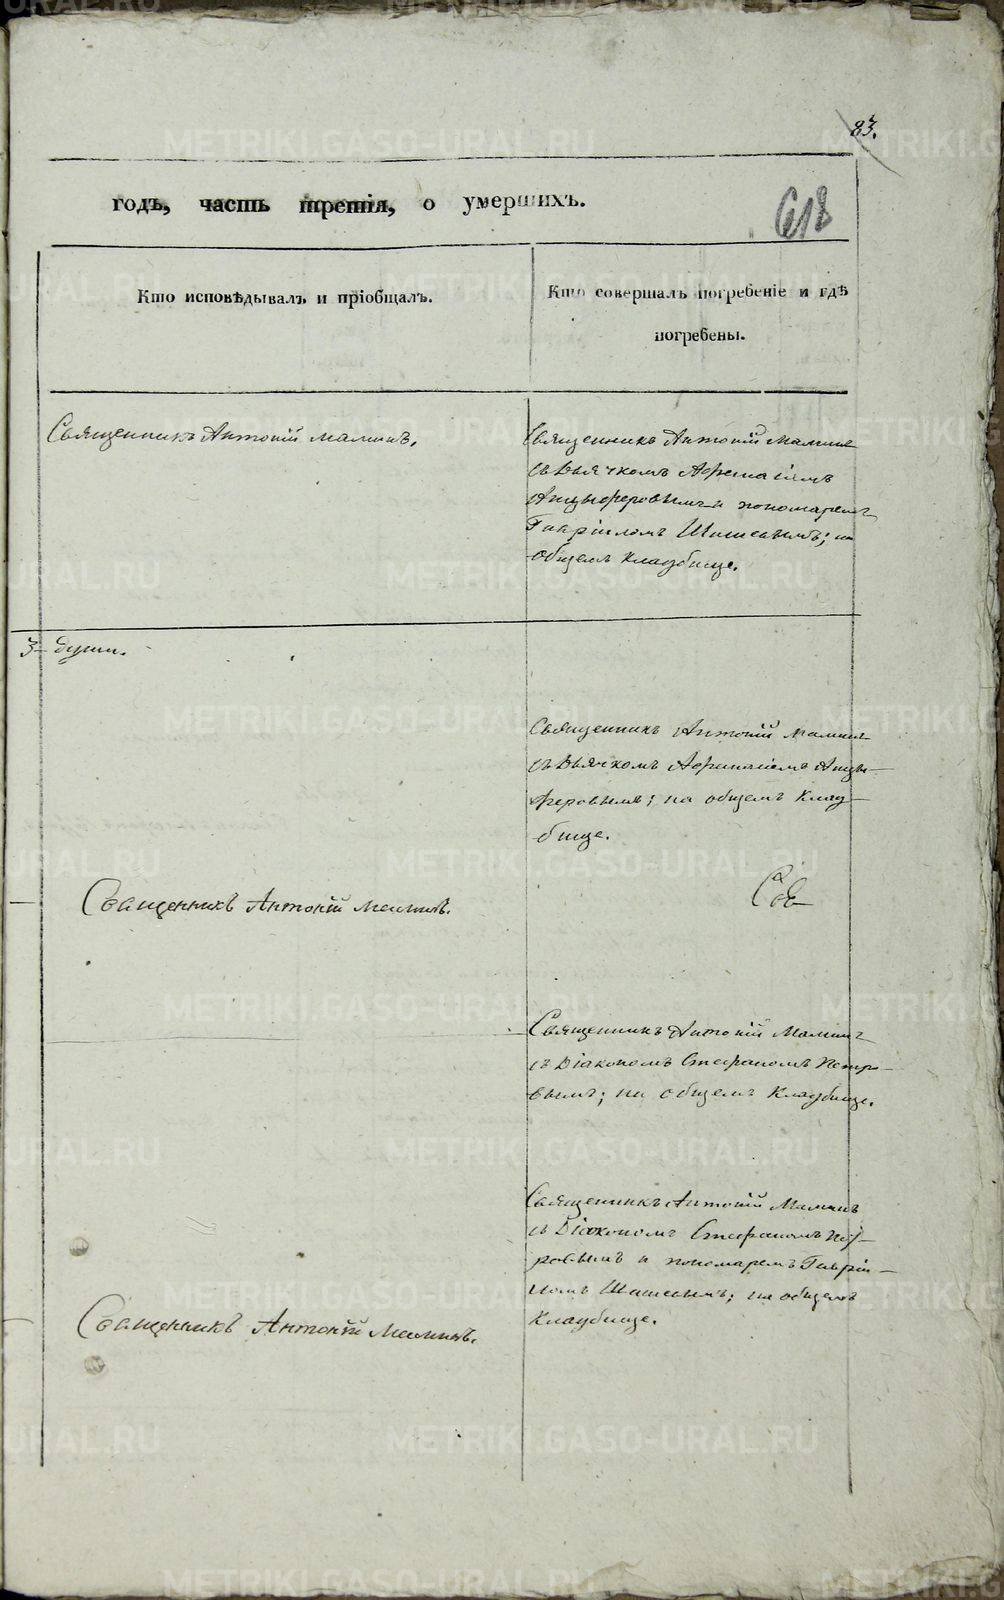 83.
годъ, часть третія, о умершихъ.
618
Кто исповѣдывалъ и пріобщалъ.
Кто совершалъ погребеніе и гдѣ
погребены.
Священникъ Антоній Маминъ.
Священникъ Антоній Маминъ
съ Дьячкомъ Афанасіемъ
Анцыферовымъ и пономаремъ
Гавріиломъ Шишевымъ; на
общемъ кладбище.
3 души.
Священникъ Антоній Маминъ
съ Дьячкомъ Афанасіемъ Анцы-
феровымъ; на общемъ клад-
бище.
Священникъ Антоній Маминъ.
Священникъ Антоній Маминъ
съ Діакономъ Стефаномъ Петро-
вымъ; на общемъ кладбище.
Священникъ Антоній Маминъ
съ Діакономъ Стефаномъ Пет-
ровымъ и пономаремъ Гавріи-
ломъ Шишевымъ; на общемъ
кладбище.
Священникъ Антоній Маминъ.
METRIKI.GASO-URAL.RU